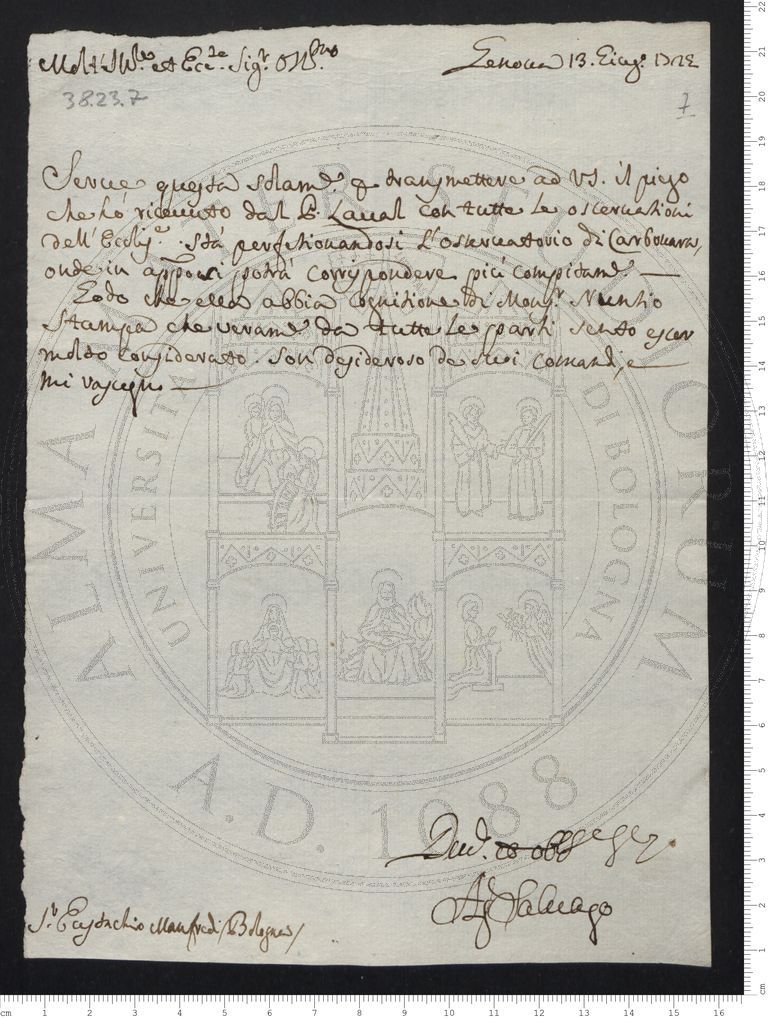 Molt' Ill.re et Ecc.te Sig.r Oss.mo
Genova 13. Giug.o 1722
38.23.7
7
Serve questa solam.e p transmettere ad VS. il piego
che hò ricevuto dal P. Laval con tutte le osservationi
dell' Ecclis.e. Stà perfetionandosi l'osservatorio di Carbonara,
onde in appo potrà corrispondere più compitam.e —
Godo che ella abbia cognitione di Mons.r Nuntio
Stampa che veram.e da tutte le parti sento esser
molto considerato. Son desideroso de suoi comandi, e
mi rassegno —
ALMA MATER STUDIORUM
UNIVERSITÀ DI BOLOGNA
A.D. 1088
Div.
Ag. Salvago
S.r Eustachio Manfredi / Bologna /